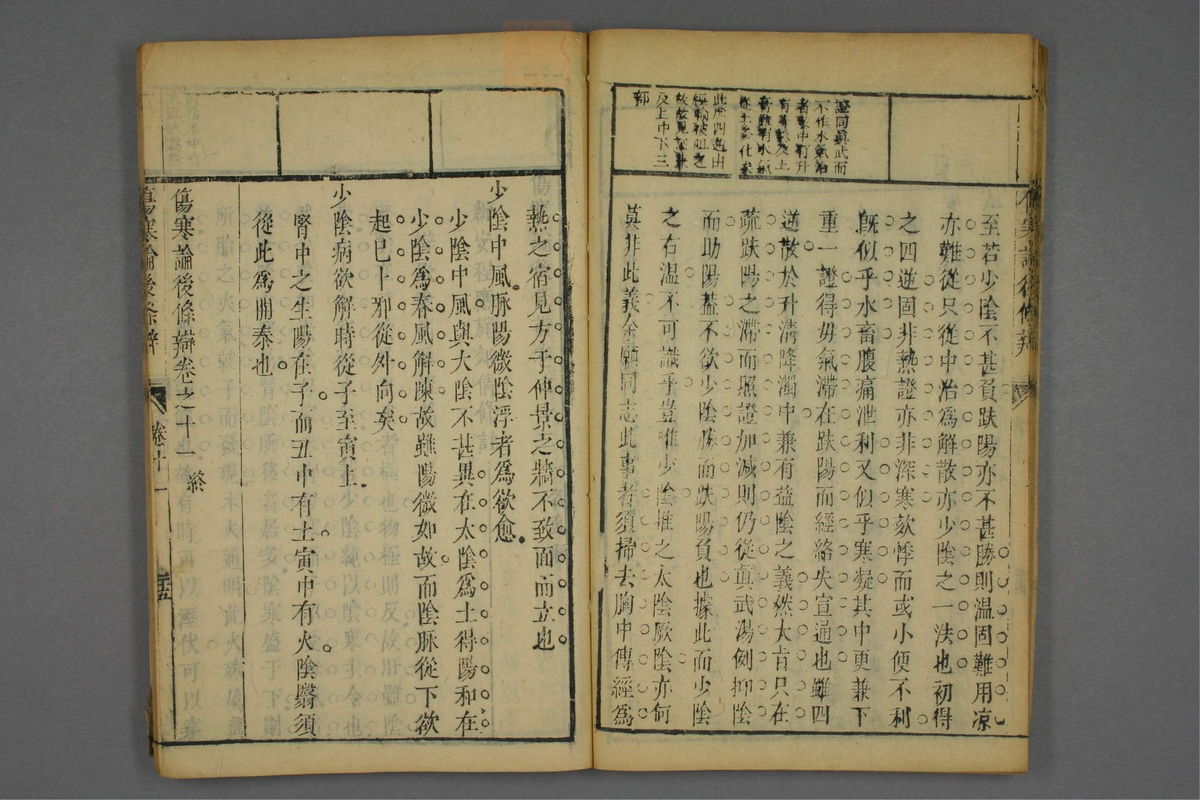 證同真武而
不作水氣治
者
此四逆由
反上中下三
部
至若少陰不甚負趺陽亦不甚勝則温固難用凉
亦難從只從中治爲解散亦少陰之一法也初得
之四逆固非熱證亦非深寒欬悸而或小便不利
既似乎水畜腹痛泄利又似乎寒凝其中更兼下
重一證得毋氣滯在趺陽而經絡失宣通也雖四
逆散於升清降濁中兼有益陰之義然大旨只在
疏趺陽之滯而照證加減則仍從真武湯例抑陰
而助陽蓋不欲少陰勝而趺陽負也據此而少陰
之右温不可識乎豈唯少陰推之太陰厥陰亦何
莫非此義余願同志此事者須掃去胸中傳經爲
熱之宿見方于仲景之牆不致面而立也
少陰中風脉陽微陰浮者爲欲愈
少陰中風與大陰不甚異在太陰爲土得陽和在
少陰爲春風解陳故雖陽微如故而陰脉從下欲
起已卜邪從外向矣
少陰病欲解時從子至寅上
腎中之生陽在子前丑中有土寅中有火陰翳須
從此爲開泰也
傷寒論後條辯卷之十一 終
傷寒論後條辯 卷十一